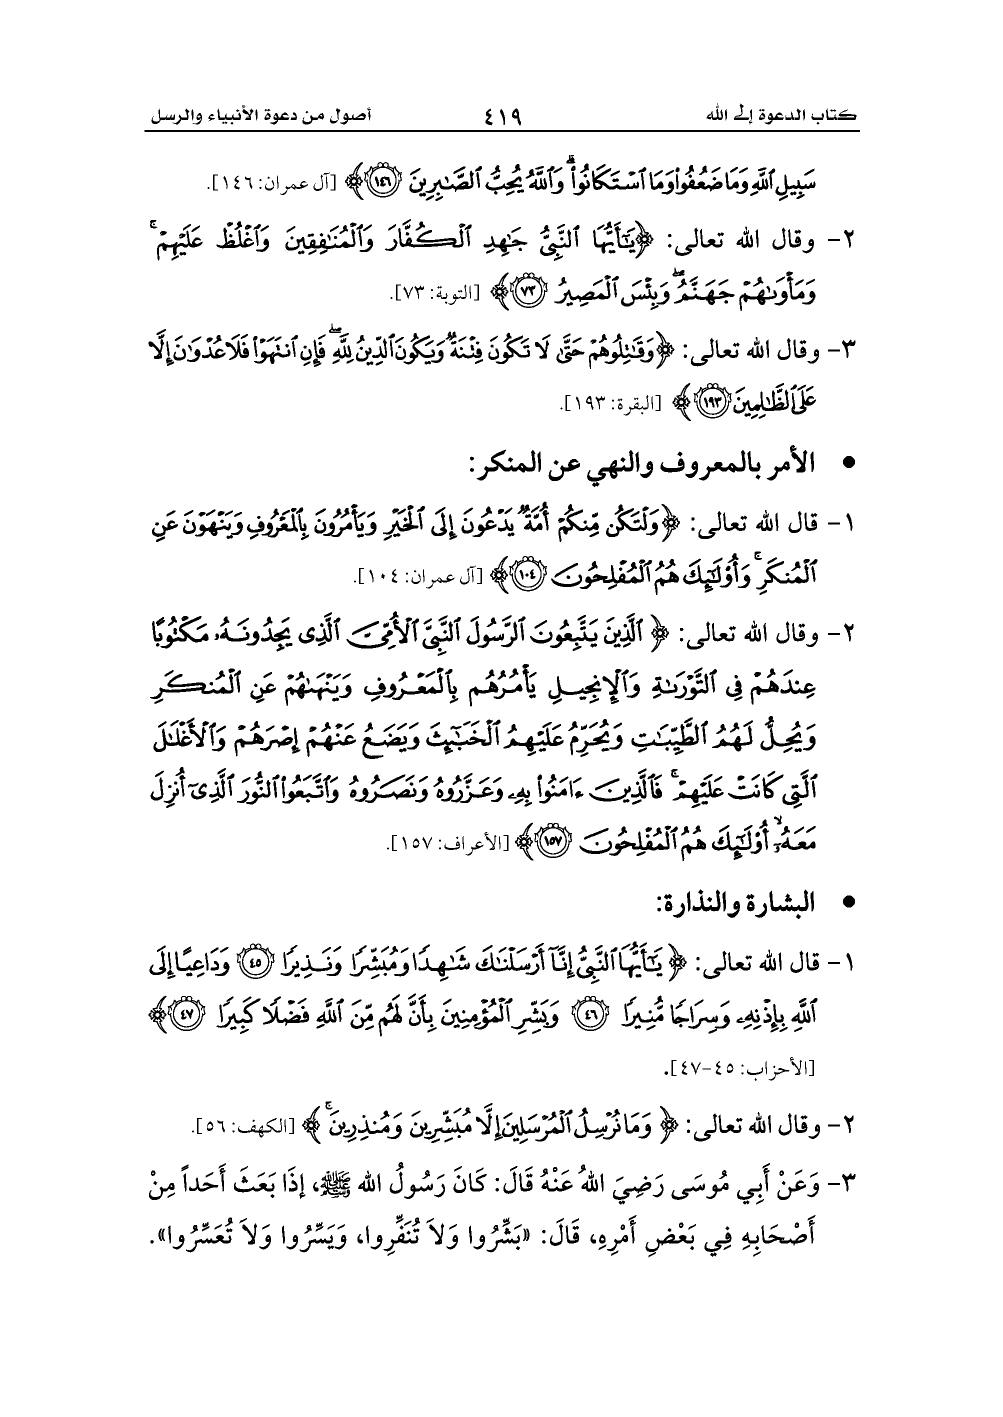 كتاب الدعوة إلى الله ٤١٩ أصول من دعوة الأنبياء والرسل
سَبِيلِ ٱللَّهِ وَمَا ضَعُفُوا۟ وَمَا ٱسْتَكَانُوا۟ ۗ وَٱللَّهُ يُحِبُّ ٱلصَّٰبِرِينَ ﴿١٤٦﴾ ﴾ [آل عمران: ١٤٦].
٢- وقال الله تعالى: ﴿يَٰٓأَيُّهَا ٱلنَّبِىُّ جَٰهِدِ ٱلْكُفَّارَ وَٱلْمُنَٰفِقِينَ وَٱغْلُظْ عَلَيْهِمْ ۚ
وَمَأْوَىٰهُمْ جَهَنَّمُ ۖ وَبِئْسَ ٱلْمَصِيرُ ﴿٧٣﴾ ﴾ [التوبة: ٧٣].
٣- وقال الله تعالى: ﴿وَقَٰتِلُوهُمْ حَتَّىٰ لَا تَكُونَ فِتْنَةٌ وَيَكُونَ ٱلدِّينُ لِلَّهِ ۖ فَإِنِ ٱنتَهَوْا۟ فَلَا عُدْوَٰنَ إِلَّا
عَلَى ٱلظَّٰلِمِينَ ﴿١٩٣﴾ ﴾ [البقرة: ١٩٣].
● الأمر بالمعروف والنهي عن المنكر:
١- قال الله تعالى: ﴿وَلْتَكُن مِّنكُمْ أُمَّةٌ يَدْعُونَ إِلَى ٱلْخَيْرِ وَيَأْمُرُونَ بِٱلْمَعْرُوفِ وَيَنْهَوْنَ عَنِ
ٱلْمُنكَرِ ۚ وَأُو۟لَٰٓئِكَ هُمُ ٱلْمُفْلِحُونَ ﴿١٠٤﴾ ﴾ [آل عمران: ١٠٤].
٢- وقال الله تعالى: ﴿ ٱلَّذِينَ يَتَّبِعُونَ ٱلرَّسُولَ ٱلنَّبِىَّ ٱلْأُمِّىَّ ٱلَّذِى يَجِدُونَهُۥ مَكْتُوبًا
عِندَهُمْ فِى ٱلتَّوْرَىٰةِ وَٱلْإِنجِيلِ يَأْمُرُهُم بِٱلْمَعْرُوفِ وَيَنْهَىٰهُمْ عَنِ ٱلْمُنكَرِ
وَيُحِلُّ لَهُمُ ٱلطَّيِّبَٰتِ وَيُحَرِّمُ عَلَيْهِمُ ٱلْخَبَٰٓئِثَ وَيَضَعُ عَنْهُمْ إِصْرَهُمْ وَٱلْأَغْلَٰلَ
ٱلَّتِى كَانَتْ عَلَيْهِمْ ۚ فَٱلَّذِينَ ءَامَنُوا۟ بِهِۦ وَعَزَّرُوهُ وَنَصَرُوهُ وَٱتَّبَعُوا۟ ٱلنُّورَ ٱلَّذِىٓ أُنزِلَ
مَعَهُۥٓ ۙ أُو۟لَٰٓئِكَ هُمُ ٱلْمُفْلِحُونَ ﴿١٥٧﴾ ﴾ [الأعراف: ١٥٧].
● البشارة والنذارة:
١- قال الله تعالى: ﴿ يَٰٓأَيُّهَا ٱلنَّبِىُّ إِنَّآ أَرْسَلْنَٰكَ شَٰهِدًا وَمُبَشِّرًا وَنَذِيرًا ﴿٤٥﴾ وَدَاعِيًا إِلَى
ٱللَّهِ بِإِذْنِهِۦ وَسِرَاجًا مُّنِيرًا ﴿٤٦﴾ وَبَشِّرِ ٱلْمُؤْمِنِينَ بِأَنَّ لَهُم مِّنَ ٱللَّهِ فَضْلًا كَبِيرًا ﴿٤٧﴾ ﴾
[الأحزاب: ٤٥-٤٧].
٢- وقال الله تعالى: ﴿ وَمَا نُرْسِلُ ٱلْمُرْسَلِينَ إِلَّا مُبَشِّرِينَ وَمُنذِرِينَ ۚ ﴾ [الكهف: ٥٦].
٣- وَعَنْ أَبِي مُوسَى رَضِيَ اللهُ عَنْهُ قَالَ: كَانَ رَسُولُ الله ﷺ، إِذَا بَعَثَ أَحَداً مِنْ
أَصْحَابِهِ فِي بَعْضِ أَمْرِهِ، قَالَ: «بَشِّرُوا وَلاَ تُنَفِّرُوا، وَيَسِّرُوا وَلاَ تُعَسِّرُوا».